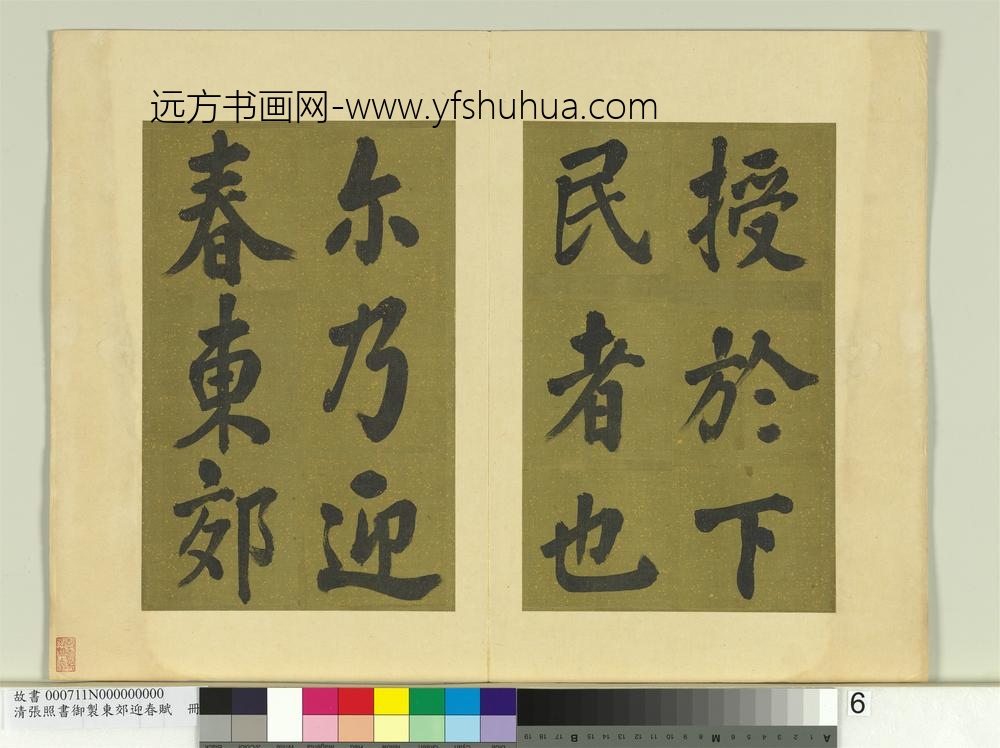 远方书画网-www.yfshuhua.com
授於下
民者也
尔乃迎
春東郊
故書 000711N000000000
清張照書御製東郊迎春賦 冊
6